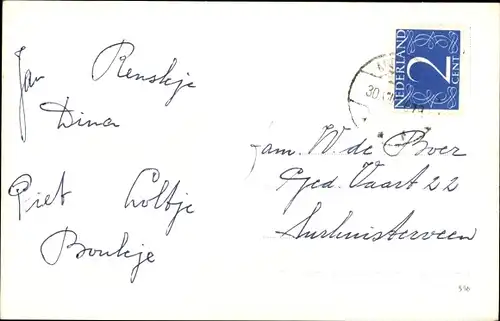 Jan Renskje
Dina
Piet Loltje
Boukje
NEDERLAND
2
CENT
30
19
Fam. W. de Boer
Ged. Vaart 22
Surhuisterveen